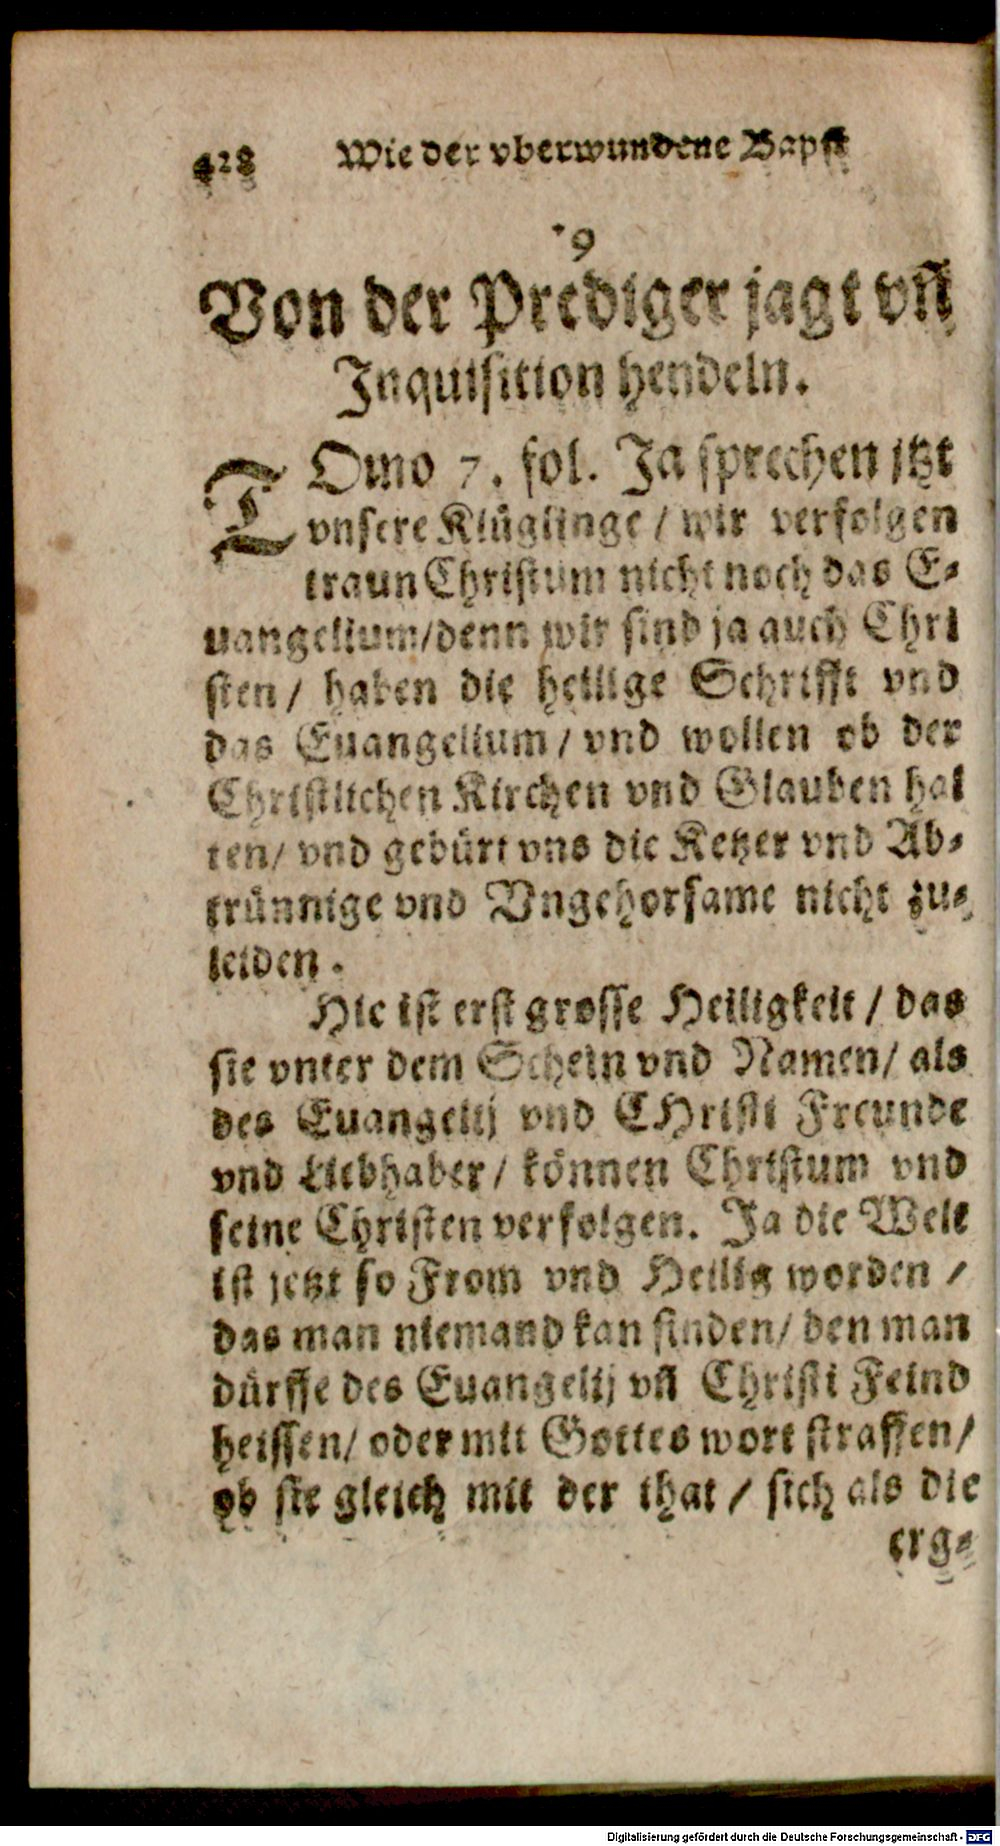 428 Wie der vberwundene Bapst
9
Von der Prediger jagt vñ
Inquisition hendeln.
TOmo 7. fol. Ja sprechen jtzt
vnsere Klüglinge / wir verfolgen
traun Christum nicht noch das E-
uangelium/denn wir sind ja auch Chri
sten / haben die heilige Schrifft vnd
das Euangelium / vnd wollen ob der
Christlichen Kirchen vnd Glauben hal
ten/ vnd gebürt vns die Ketzer vnd Ab-
trünnige vnd Vngehorsame nicht zu-
leiden.
Hie ist erst grosse Heiligkeit / das
sie vnter dem Schein vnd Namen/ als
des Euangelij vnd CHristi Freunde
vnd Liebhaber / können Christum vnd
seine Christen verfolgen. Ja die Welt
ist jetzt so From vnd Heilig worden /
das man niemand kan finden/ den man
dürffe des Euangelij vñ Christi Feind
heissen/ oder mit Gottes wort straffen/
ob sie gleich mit der that / sich als die
erg-
Digitalisierung gefördert durch die Deutsche Forschungsgemeinschaft - DFG